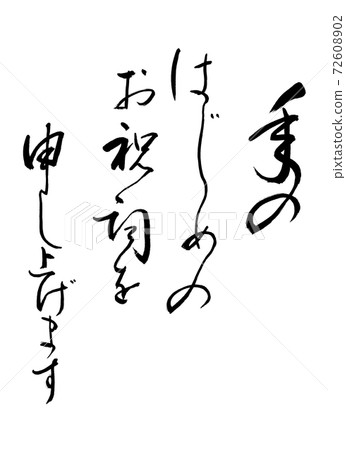 年の
はじめの
お祝詞を
申し上げます
PIXTA
72608902